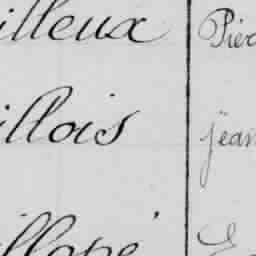 illeux Pier
illois jean
illopé